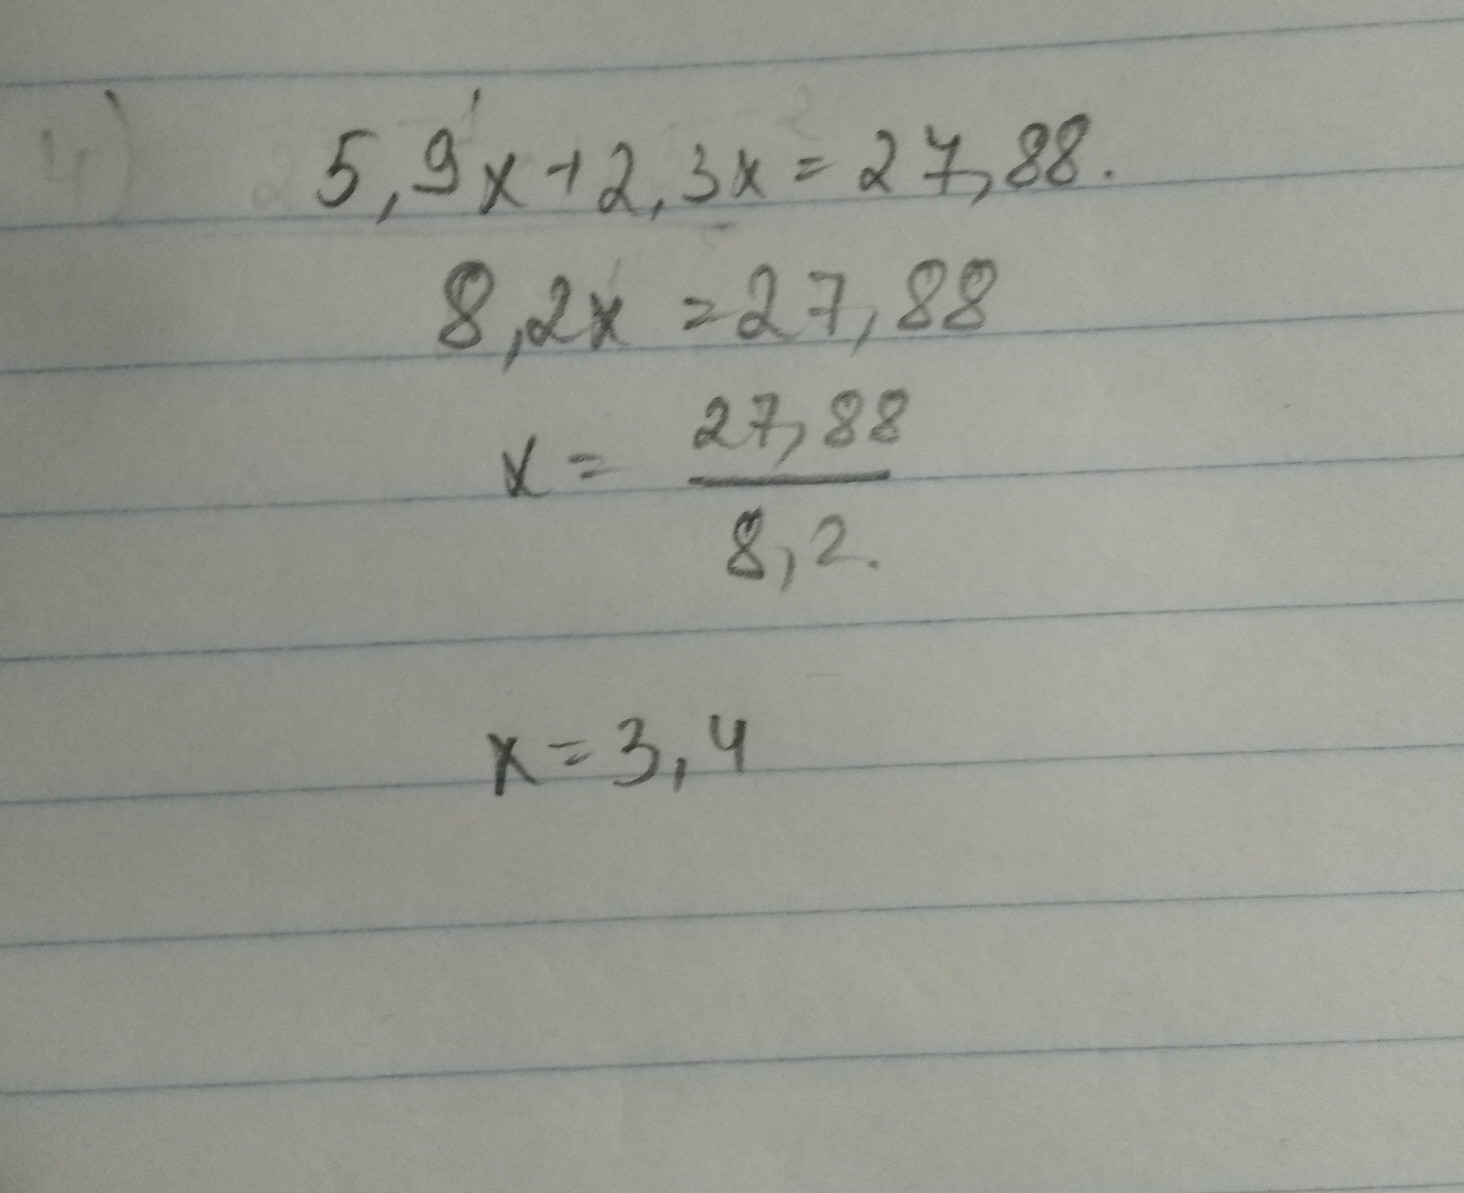 4) 5,9x+2,3x=27,88.
8,2x=27,88
x= 27,88
8,2.
x=3,4